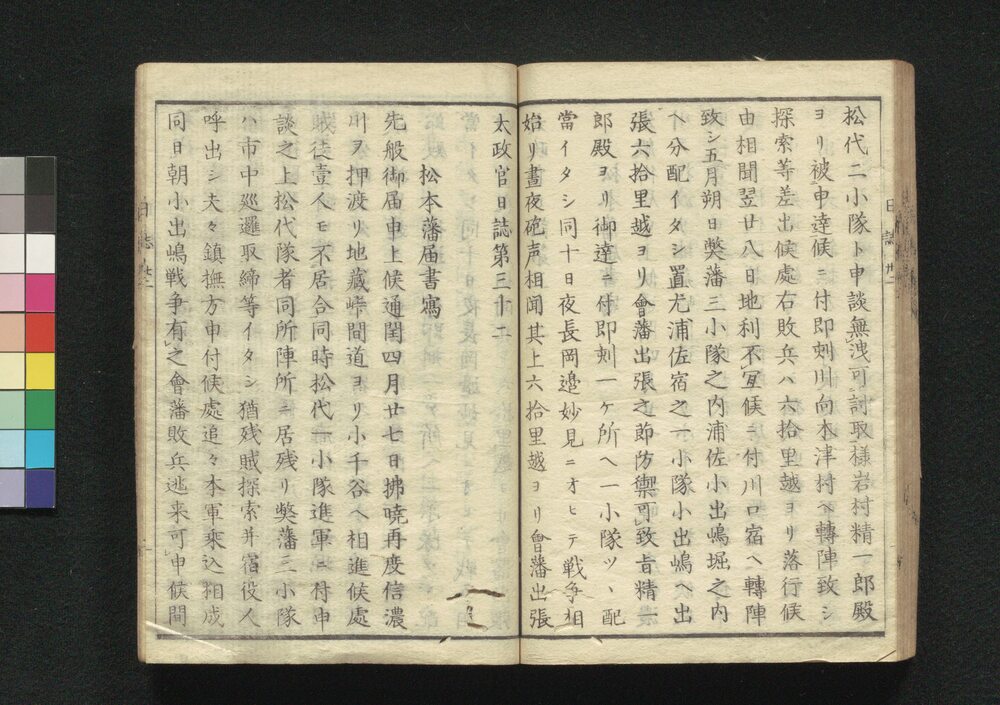 松代二小隊ト申談無洩可討取様岩村精一郎殿
ヨリ被申達候ニ付即刻川向木津村ヘ轉陣致シ
探索等差出候處右敗兵ハ六拾里越ヨリ落行候
由相聞翌廿八日地利不冝候ニ付川口宿ヘ轉陣
致シ五月朔日弊藩三小隊之内浦佐小出嶋堀之内
ヘ分配イタシ置尤浦佐宿之一小隊小出嶋ヘ出
張六拾里越ヨリ會藩出張之節防禦可致旨精一
郎殿ヨリ御達ニ付即刻一ケ所ヘ一小隊ツヽ配
當イタシ同十日夜長岡邉妙見ニオヒテ戦争相
始リ晝夜砲声相聞其上六拾里越ヨリ會藩出張
太政官日誌第三十二
松本藩届書寫
先般御届申上候通閏四月廿七日拂暁再度信濃
川ヲ押渡リ地蔵峠間道ヨリ小千谷ヘ相進候處
賊徒壹人モ不居合同時松代二小隊進軍ニ付申
談之上松代隊者同所陣所ニ居残リ弊藩三小隊
ハ市中廵邏取締等イタシ猶残賊探索并宿役人
呼出シ夫々鎮撫方申付候處追々本軍乗込相成
同日朝小出嶋戦争有之會藩敗兵逃来可申候間
日誌 卅二